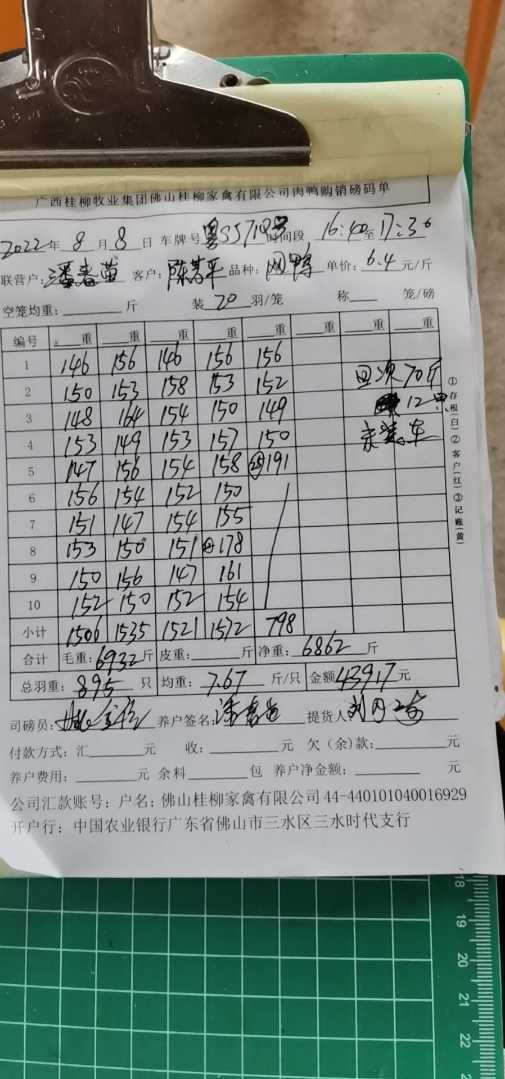 广西桂柳牧业集团佛山桂柳家禽有限公司肉鸭购销磅码单
2022年 8 月 8 日 车牌号 时间段 16:40至17:30
联营户: 潘春苗 客户: 品种: 单价: 6.4 元/斤
空笼均重: 斤 装 20 羽/笼 称 笼/磅
编号 重 重 重 重 重 重 重 重
1 146 156 146 156 156 回次70斤
2 150 153 158 153 152 12只
3 148 164 154 150 149 未装车
4 153 149 153 157 150
5 147 156 154 158 191
6 156 154 152 150
7 151 147 154 155
8 153 150 151 178
9 150 156 147 161
10 152 150 152 154
小计 1506 1535 1521 1572 798
合计 毛重: 6932 斤 皮重: 斤 净重: 6862 斤
总羽重: 895 只 均重: 7.67 斤/只 金额 43917 元
司磅员: 养户签名: 提货人
付款方式: 汇 元 收: 元 欠(余)款: 元
养户费用: 元 余料 包 养户净金额: 元
公司汇款账号: 户名: 佛山桂柳家禽有限公司 44-440101040016929
开户行: 中国农业银行广东省佛山市三水区三水时代支行
①存根(白)②客户(红)③记账(黄)
18
19
20
21
22